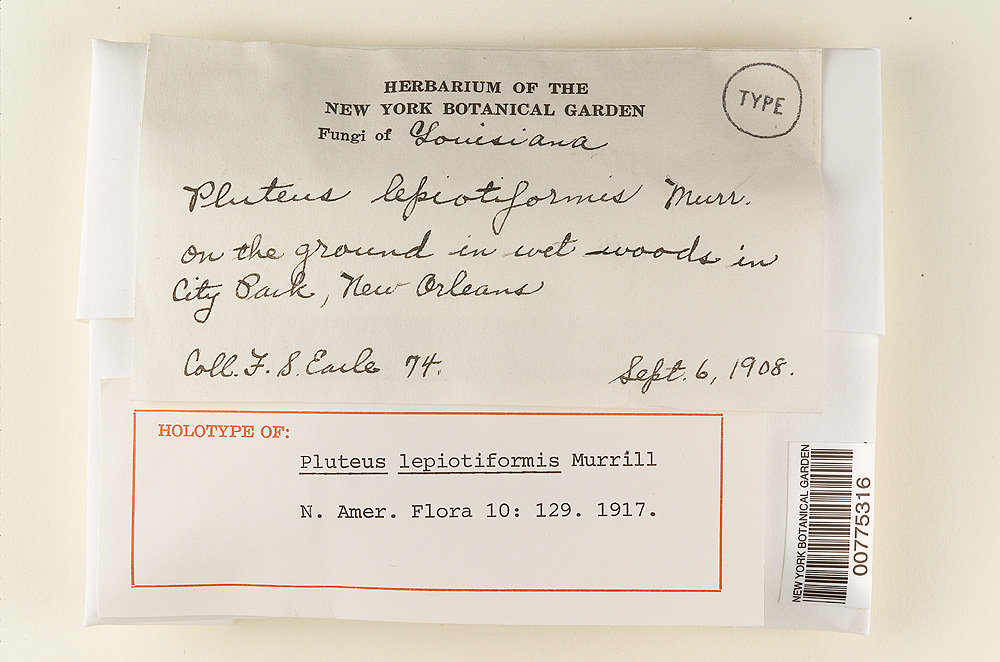 HERBARIUM OF THE
NEW YORK BOTANICAL GARDEN
TYPE
Fungi of Louisiana
Pluteus lepiotiformis Murr.
on the ground in wet woods in
City Park, New Orleans
Coll. F. S. Earle 74. Sept. 6, 1908.
HOLOTYPE OF:
Pluteus lepiotiformis Murrill
N. Amer. Flora 10: 129. 1917.
NEW YORK BOTANICAL GARDEN
00775316